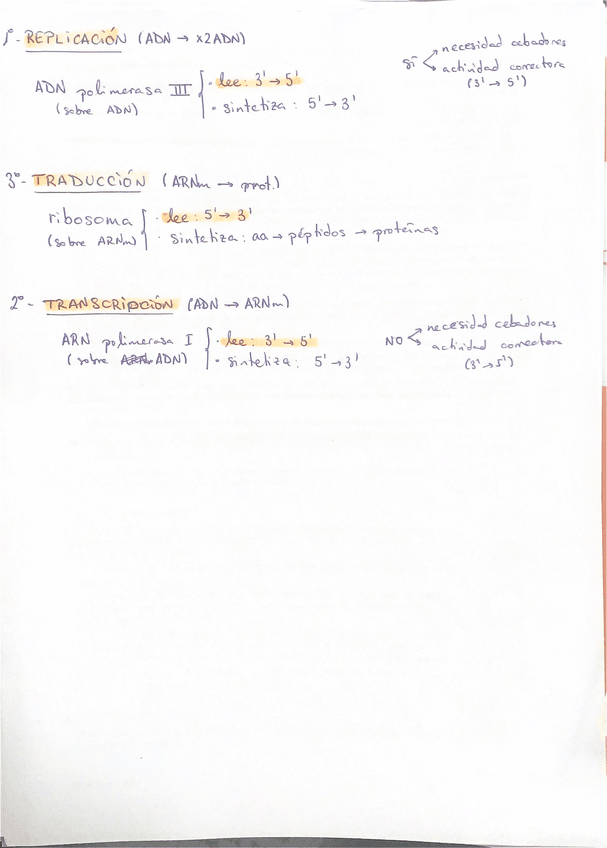 1º- REPLICACIÓN (ADN → x2ADN)
SÍ
necesidad cebadores
actividad correctora
(3' → 5')
ADN polimerasa III
(sobre ADN)
· lee: 3' → 5'
· sintetiza: 5' → 3'
3º- TRADUCCIÓN (ARNm → prot.)
ribosoma
(sobre ARNm)
· lee: 5' → 3'
· sintetiza: aa → péptidos → proteínas
2º- TRANSCRIPCIÓN (ADN → ARNm)
NO
necesidad cebadores
actividad correctora
(3' → 5')
ARN polimerasa I
(sobre ADN)
· lee: 3' → 5'
· sintetiza: 5' → 3'